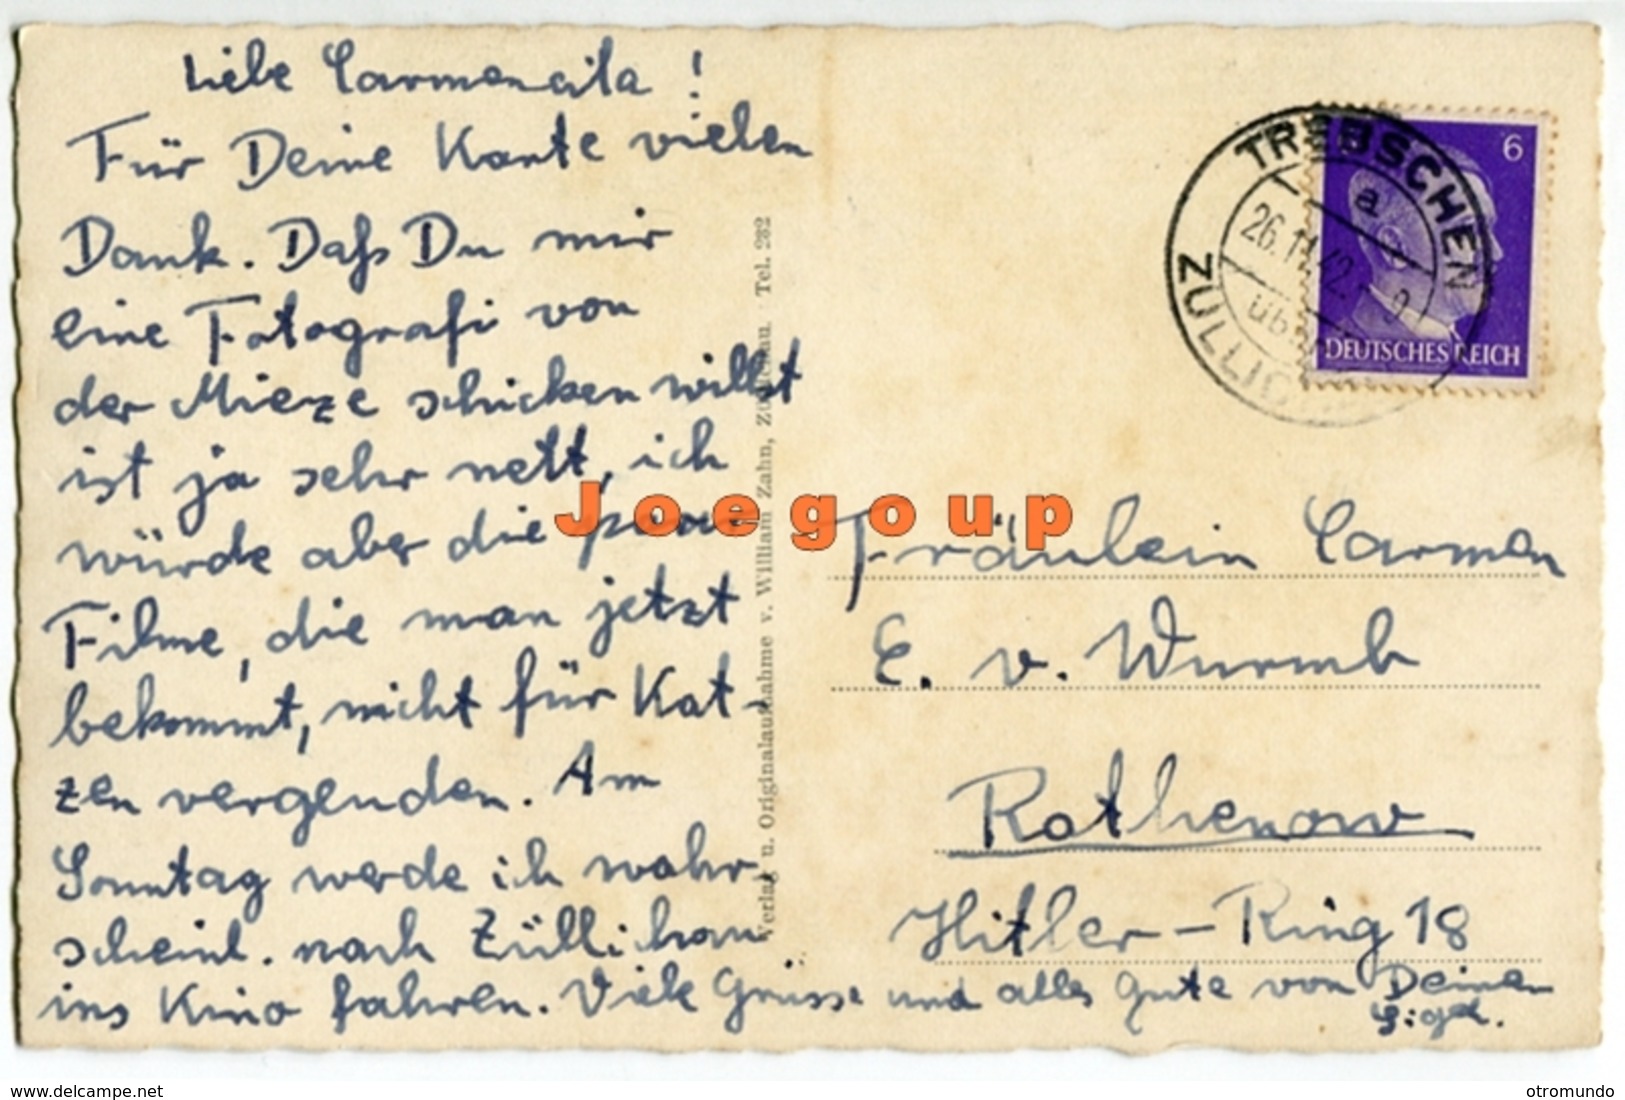 Liebe Carmencita!
Für Deine Karte vielen
Dank. Daß Du mir
eine Fotografi von
der Mieze schicken willst
ist ja sehr nett, ich
würde aber die paar
Filme, die man jetzt
bekommt, nicht für Kat-
zen vergeuden. Am
Sonntag werde ich wahr-
scheinl. nach Züllichau
ins Kino fahren. Viele Grüsse und alles Gute von Deinem
Verlag u. Originalaufnahme v. William Zahn, Züllichau. Tel. 282
TREBSCHEN
a
26.11.42.
üb
ZÜLLICHAU
6
DEUTSCHES REICH
Joegoup
Fräulein Carmen
E. v. Wurmb
Rathenow
Hitler-Ring 18
www.delcampe.net
otromundo